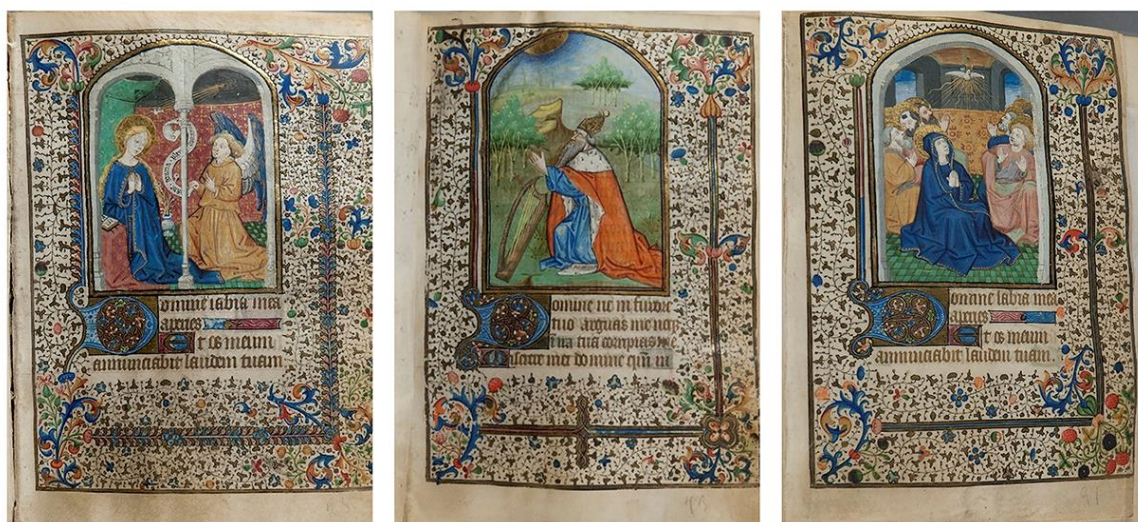 Domine labia mea
aperies
Et os meum
annunciabit laudem tuam.
Domine ne in furore
tuo arguas me
ira tua corripias me
Miserere mei domine
Domine labia mea
aperies
Et os meum
annunciabit laudem tuam.